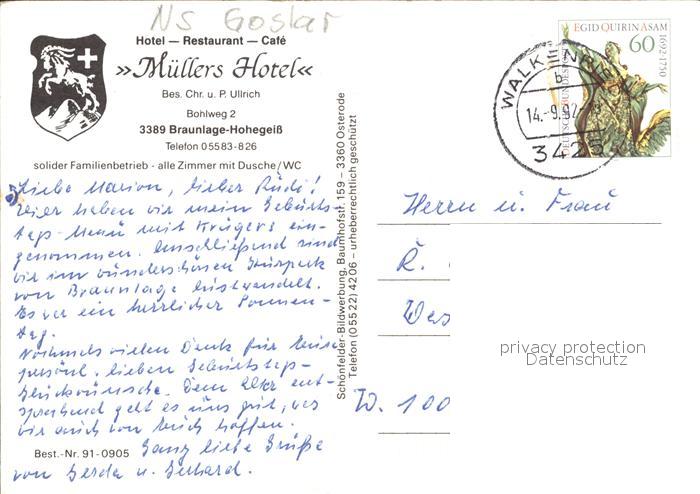 NS Goslar
Hotel — Restaurant — Café
»Müllers Hotel«
Bes. Chr. u. P. Ullrich
Bohlweg 2
3389 Braunlage-Hohegeiß
Telefon 05583-826
solider Familienbetrieb - alle Zimmer mit Dusche/WC
Liebe Marion, lieber Rudi!
Hier haben wir mein Geburts-
tags-Menü mit Krügers ein-
genommen. Anschließend sind
wir im wunderschönen Kurpark
von Braunlage lustwandelt.
Es war ein herrlicher Sonnen-
tag.
Nochmals vielen Dank für Eure
persönl. lieben Geburtstags-
Glückwünsche. Dem Alter ent-
sprechend geht es uns gut, was
wir auch von Euch hoffen.
Ganz liebe Grüße
von Gerda u. Gerhard.
Best.-Nr. 91-0905
Schönfelder-Bildwerbung, Baumhofstr. 159 – 3360 Osterode
Telefon (05522) 4206 – urheberrechtlich geschützt
EGID QUIRIN ASAM
60
1692-1750
DEUTSCHE BUNDESPOST
WALKENRIED
b
14.-9.92
3425
Herrn u. Frau
R.
Wes
W. 100
privacy protection
Datenschutz